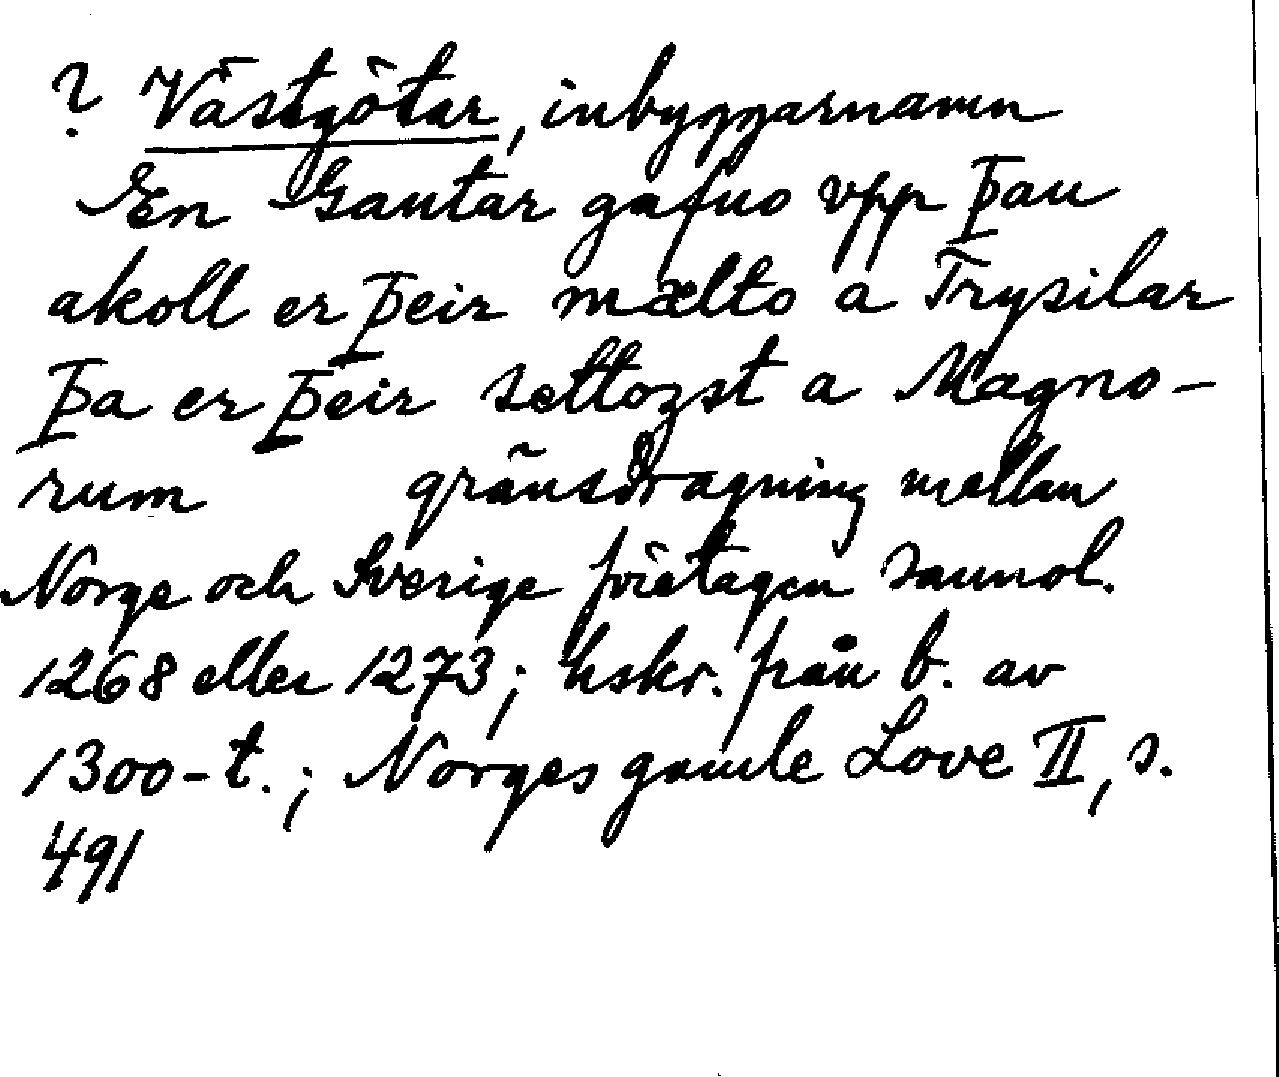 ? Västgötar, inbyggarnamn
En Gautar gafuo vpp þau
akoll er þeir mælto a Trysilar
Þa er þeir settozst a Magno-
rum gränsdragning mellan
Norge och Sverige företagen sannol.
1268 eller 1273; hskr. från b. av
1300-t.; Norges gamle Love II, s.
491